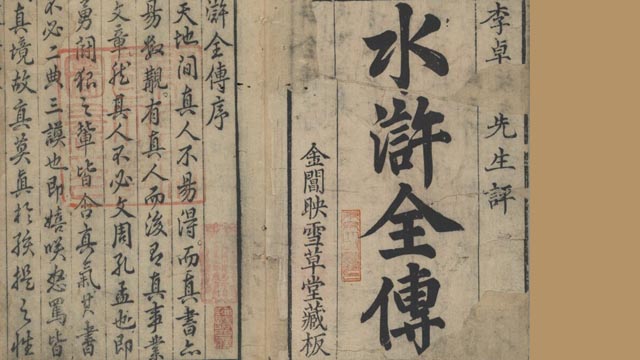 李卓
先生評
水滸全傳
金閶映雪草堂藏板
滸全傳序
天地間真人不易得而真書亦
易數覯有真人而後有真事業
文章然其人不必文周孔孟也即
勇鬪狠之輩皆含真氣其書
不必二典三謨也即嬉咲怒罵皆
真境故真莫真於孩提之性